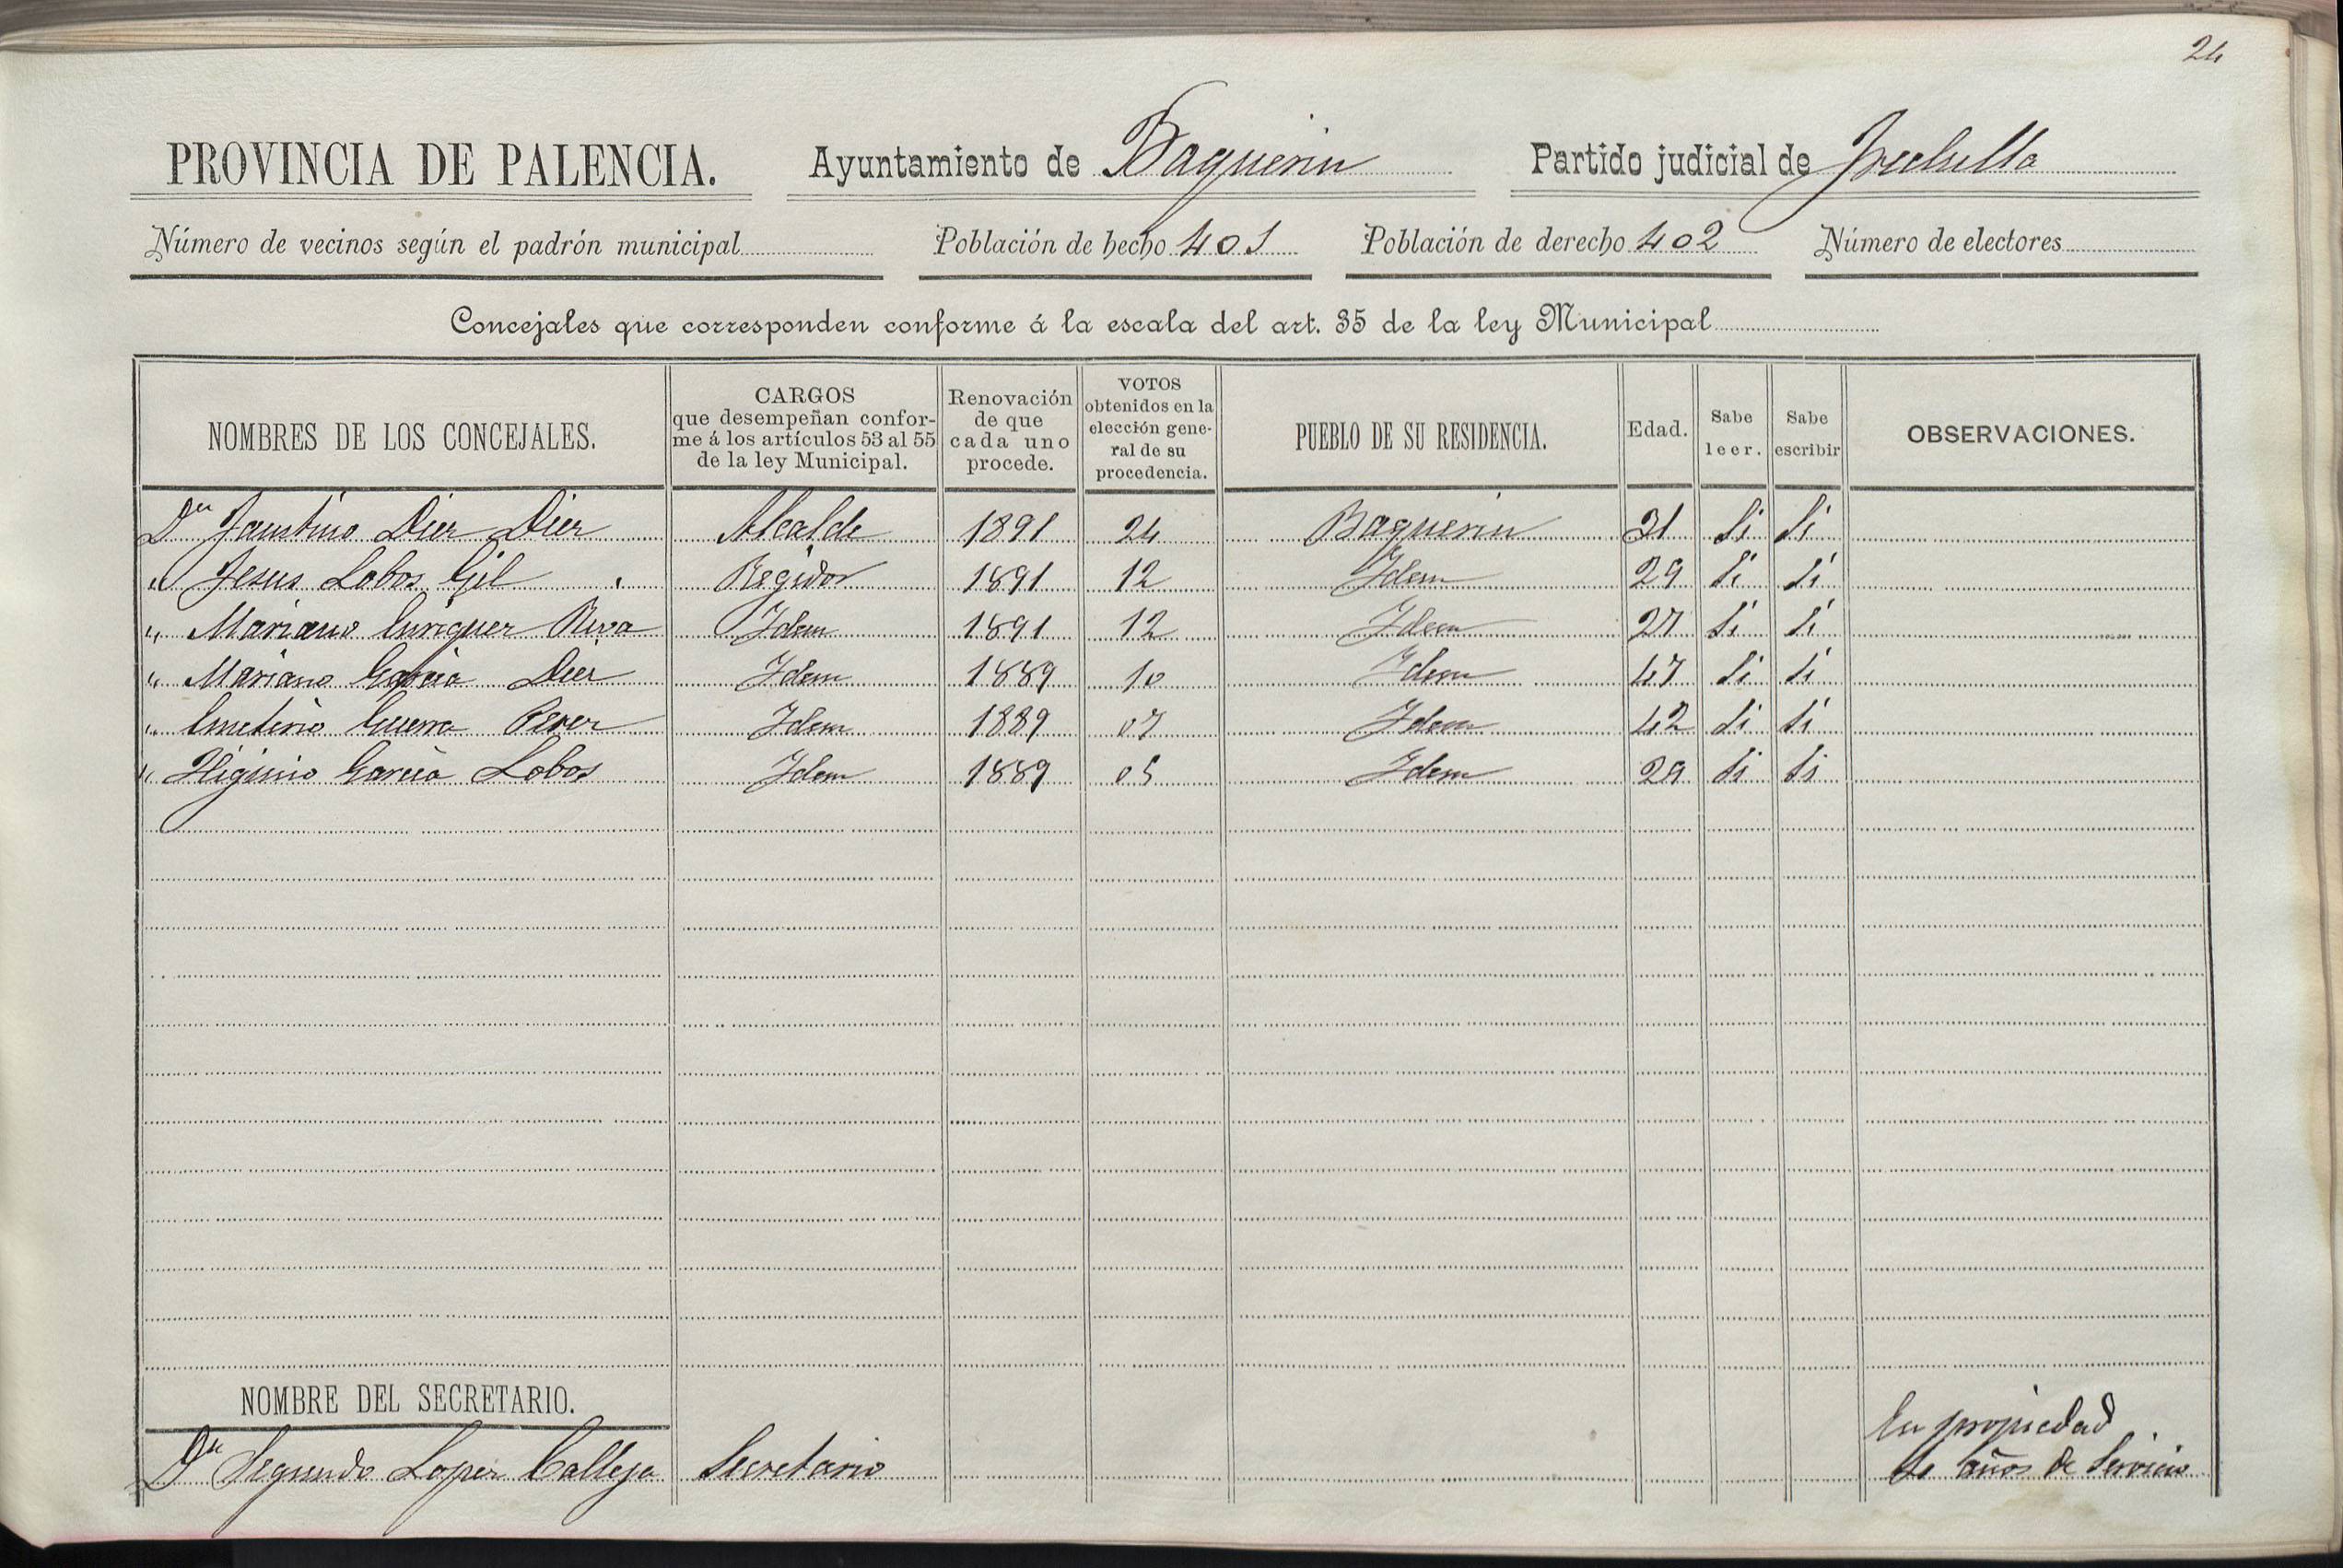 24
PROVINCIA DE PALENCIA. Ayuntamiento de Baquerin Partido judicial de Frechilla
Número de vecinos según el padrón municipal Población de hecho 401 Población de derecho 402 Número de electores
Concejales que corresponden conforme á la escala del art. 35 de la ley Municipal
NOMBRES DE LOS CONCEJALES. CARGOS que desempeñan conforme á los artículos 53 al 55 de la ley Municipal. Renovación de que cada uno procede. VOTOS obtenidos en la elección general de su procedencia. PUEBLO DE SU RESIDENCIA. Edad. Sabe leer. Sabe escribir OBSERVACIONES.
Dn Faustino Diez Diez Alcalde 1891 24 Baquerin 31 Si Si
" Jesus Lobos Gil Regidor 1891 12 Idem 29 Si Si
" Mariano Enriquez Riva Idem 1891 12 Idem 27 Si Si
" Mariano Garcia Diez Idem 1889 10 Idem 47 Si Si
" Emeterio Guerra Perez Idem 1889 07 Idem 42 Si Si
" Higinio Garcia Lobos Idem 1889 05 Idem 29 Si Si
NOMBRE DEL SECRETARIO.
En propiedad
Dn Segundo Lopez Calleja Secretario años de Servicio